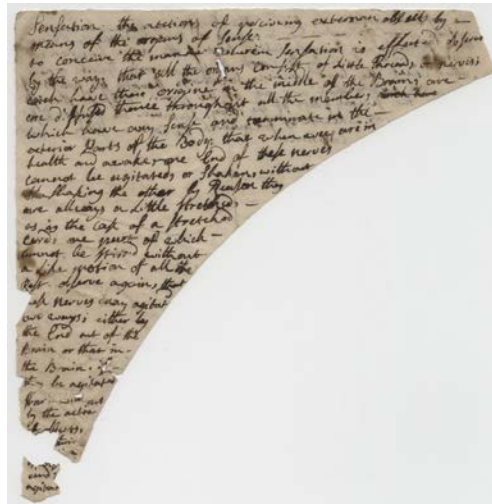 Sensation the actions of perceiving external objects by
means of the organs of sense
to conceive the manner wherein sensation is effected observe
by the way that all the organs consist of little threads or nerves
which have their origine in the middle of the Brains are
diffused thence throughout all the members
which have any sense and terminate in the
exterior Parts of the Body that when we are in
health and awake one End of these nerves
cannot be agitated or Shaken without
Shaking the other by Reason they
are allways a Little Stretched
as is the case of a stretched
cord one part of which
cannot be stird without
a like motion of all the
rest. observe again, that
nerves may agitat
two ways; either by
the End out of the
Brain or that in
the Brain. if
they be agitated
from
by the action